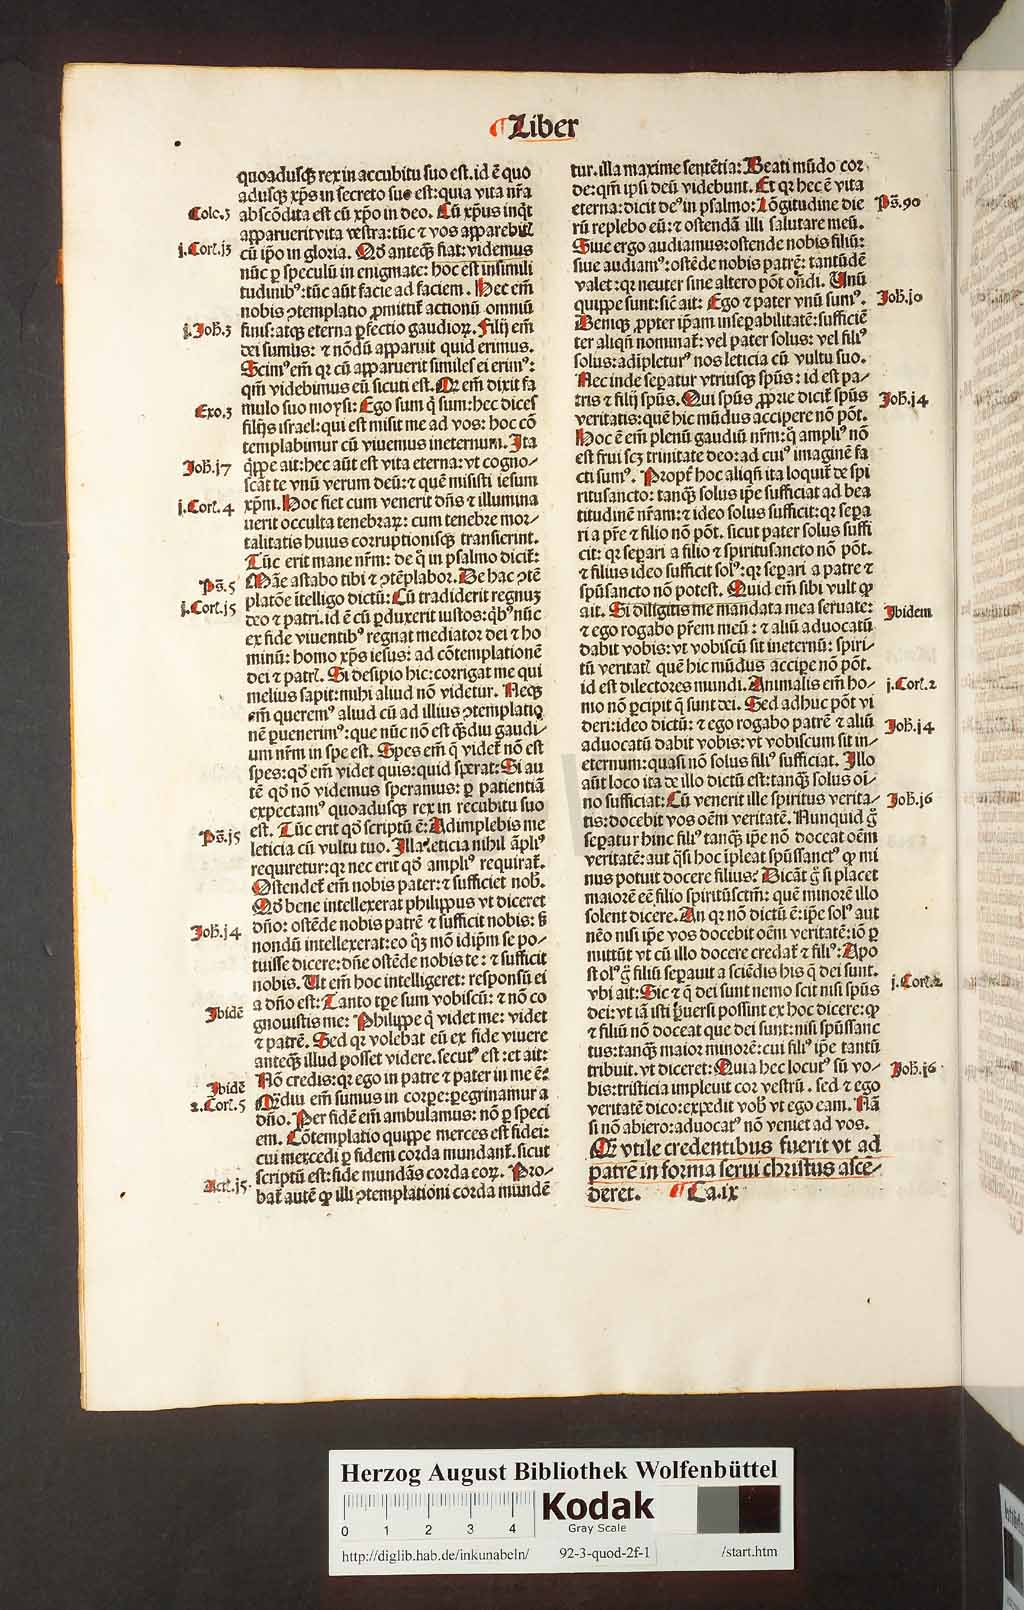 Liber
quoadusq̃ rex in accubitu suo est. id ē quo
adusq̃ xp̃s in secreto suo est: quia vita nr̃a
Colc.3
abscōdita est cū xp̃o in deo. Cū xp̃us inq̃t
apparuerit vita vestra: tūc ⁊ vos apparebit͛
j.Cor͛.j3
cū ip̃o in gloria. Qd̃ anteq̃ fiat: videmus
nūc ꝑ speculū in enigmate: hoc est in simili
tudinibꝰ: tūc aūt facie ad faciem. Hec em̄
nobis ꝯtemplatio ꝓmittit͛ actionū omniū
j.Joh̃.3
finis: atq̃ eterna ꝑfectio gaudioꝝ. Filij em̄
dei sumus: ⁊ nōdū apparuit quid erimus.
Scimꝰ em̄ qꝛ cū apparuerit similes ei erimꝰ:
qm̄ videbimus eū sicuti est. Qđ em̄ dixit fa
Exo.3
mulo suo moysi: Ego sum q̇ sum: hec dices
filijs israel: qui est misit me ad vos: hoc cō
templabimur cū viuemus in eternum. Ita
Joh̃.j7
q̇ppe ait: hec aūt est vita eterna: vt cogno⸗
scāt te vnū verum deū: ⁊ quē misisti iesum
j.Cor͛.4
xp̃m. Hoc fiet cum venerit dñs ⁊ illumina
uerit occulta tenebraꝝ: cum tenebre mor⸗
talitatis huius corruptionisq̃ transierint.
Tūc erit mane nr̄m: de q̇ in psalmo dicit͛:
Ps̃.5
Māe astabo tibi ⁊ ꝯtēplabor. De hac ꝯtē
j.Cor͛.j5
platōe ītelligo dictū: Cū tradiderit regnuꝫ
deo ⁊ patri. id ē cū ꝑduxerit iustos: q̇bꝰ nūc
ex fide viuentibꝰ regnat mediator dei ⁊ ho
minū: homo xp̃s iesus: ad cōtemplationē
dei ⁊ patrꝭ. Si desipio hic: corrigat me qui
melius sapit: mihi aliud nō videtur. Neq̃
em̄ queremꝰ aliud cū ad illius ꝯtemplatio
nē ꝑuenerimꝰ: que nūc nō est q̃diu gaudi⸗
um nr̄m in spe est. Spes em̄ q̄ videt͛ nō est
spes: qd̃ em̄ videt quis: quid sperat: Si au
tē qd̃ nō videmus speramus: ꝑ patientiā
expectamꝰ quoadusq̃ rex in recubitu suo
Ps̃.j5
est. Tūc erit qd̃ scriptū ē: Adimplebis me
leticia cū vultu tuo. Illa leticia nihil āpliꝰ
requiretur: qꝛ nec erit qd̃ ampliꝰ requirat͛.
Ostendet͛ em̄ nobis pater: ⁊ sufficiet nob̃.
Qd̃ bene intellexerat philippus vt diceret
Joh̃.j4
dño: ostēde nobis patrē ⁊ sufficit nobis: s̃
nondū intellexerat: eo q̃ꝫ mō idip̄m se po⸗
tuisse dicere: dñe ostēde nobis te: ⁊ sufficit
nobis. Ut em̄ hoc intelligeret: responsū ei
Ibidē
a dño est: Tanto tp̃e sum vobiscū: ⁊ nō co
gnouistis me: Philippe q̇ videt me: videt
⁊ patrē. Sed qꝛ volebat eū ex fide viuere
anteq̃ illud posset videre. secutꝰ est: et ait:
Ibidē
Nō credis: qꝛ ego in patre ⁊ pater in me ē?
2.Cor͛.5
Q̄diu em̄ sumus in corpe: ꝑegrinamur a
dño. Per fidē em̄ ambulamus: nō ꝑ speci
em. Cōtemplatio quippe merces est fidei:
cui mercedi ꝑ fidem corda mundant͛. sicut
Act͛.j5.
scriptū est: fide mundās corda eoꝝ. Pro⸗
bat͛ autē ꝙ illi ꝯtemplationi corda mundē
tur. illa maxime sentētia: Beati mūdo cor
de: qm̄ ipsi deū videbunt. Et qꝛ hec ē vita
Ps̃.90
eterna: dicit deꝰ in psalmo: Lōgitudine die
rū replebo eū: ⁊ ostendā illi salutare meū.
Siue ergo audiamus: ostende nobis filiū:
siue audiamꝰ: ostēde nobis patrē: tantūdē
valet: qꝛ neuter sine altero pōt on̄di. Unū
Joh̃.jo
quippe sunt: sic̄ ait: Ego ⁊ pater vnū sumꝰ.
Deniq̃ ꝓpter ip̄am inseꝑabilitatē: sufficiē
ter aliqn̄ nominat͛: vel pater solus: vel filiꝰ
solus: adīpleturꝰ nos leticia cū vultu suo.
Nec inde seꝑatur vtriusq̃ sp̄us: id est pa⸗
Joh̃.j4
tris ⁊ filij sp̄us. Qui sp̄us ꝓprie dicit͛ sp̄us
veritatis: quē hic mūdus accipere nō pōt.
Hoc ē em̄ plenū gaudiū nr̄m: q̊ ampliꝰ nō
est frui scꝫ trinitate deo: ad cuiꝰ imaginē fa
cti sumꝰ. Propt͛ hoc aliqn̄ ita loquit͛ de spi
ritusancto: tanq̃ solus ip̄e sufficiat ad bea
titudinē nr̄am: ⁊ ideo solus sufficit: qꝛ sepa
ri a pr̄e ⁊ filio nō pōt. sicut pater solus suffi
cit: qꝛ seꝑari a filio ⁊ spiritusancto nō pōt.
⁊ filius ideo sufficit solꝰ: qꝛ seꝑari a patre ⁊
sp̄usancto nō potest. Quid em̄ sibi vult ꝙ
Ibidem
ait. Si diligitis me mandata mea seruate:
⁊ ego rogabo pr̄em meū: ⁊ aliū aduocatū
dabit vobis: vt vobiscū sit in eternū: spiri⸗
tū veritatꝭ quē hic mūdus accipe nō pōt.
j.Cor͛.2
id est dilectores mundi. Animalis em̄ ho⸗
mo nō ꝑcipit q̄ sunt dei. Sed adhuc pōt vi
Joh̃.j4
deri: ideo dictū: ⁊ ego rogabo patrē ⁊ aliū
aduocatū dabit vobis: vt vobiscum sit in⸗
eternum: quasi nō solus filiꝰ sufficiat. Illo
aūt loco ita de illo dictū est: tanq̃ solus oī⸗
Joh̃.j6
no sufficiat: Cū venerit ille spiritus verita⸗
tis: docebit vos oēm veritatē. Nunquid g̊
seꝑatur hinc filiꝰ tanq̃ ip̄e nō doceat oēm
veritatē: aut q̃si hoc īpleat sp̄ussanctꝰ ꝙ mi
nus potuit docere filius? Dicāt g̊ si placet
maiorē eē filio spiritūsctm̄: quē minorē illo
solent dicere. An qꝛ nō dictū ē: ip̄e solꝰ aut
nēo nisi ip̄e vos docebit oēm veritatē: iō ꝑ
mittūt vt cū illo docere credat͛ ⁊ filiꝰ: Apo
stolꝰ g̊ filiū seꝑauit a sciēdis his q̄ dei sunt.
j.Cor͛.2
vbi ait: Sic ⁊ q̄ dei sunt nemo scit nisi sp̄us
dei: vt iā isti ꝑuersi possint ex hoc dicere: ꝙ
⁊ filiū nō doceat que dei sunt: nisi sp̄ussanc
tus: tanq̃ maior minorē: cui filiꝰ ip̄e tantū
Joh̃.j6
tribuit. vt diceret: Quia hec locutꝰ sū vo⸗
bis: tristicia impleuit cor vestrū. sed ⁊ ego
veritatē dico: expedit vob̃ vt ego eam. Nā
si nō abiero: aduocatꝰ nō veniet ad vos.
Qđ vtile credentibus fuerit vt ad
patrē in forma serui christus ascē⸗
deret. Ca.ix
Herzog August Bibliothek Wolfenbüttel
0 1 2 3 4
Kodak
Gray Scale
http://diglib.hab.de/inkunabeln/ 92-3-quod-2f-1 /start.htm